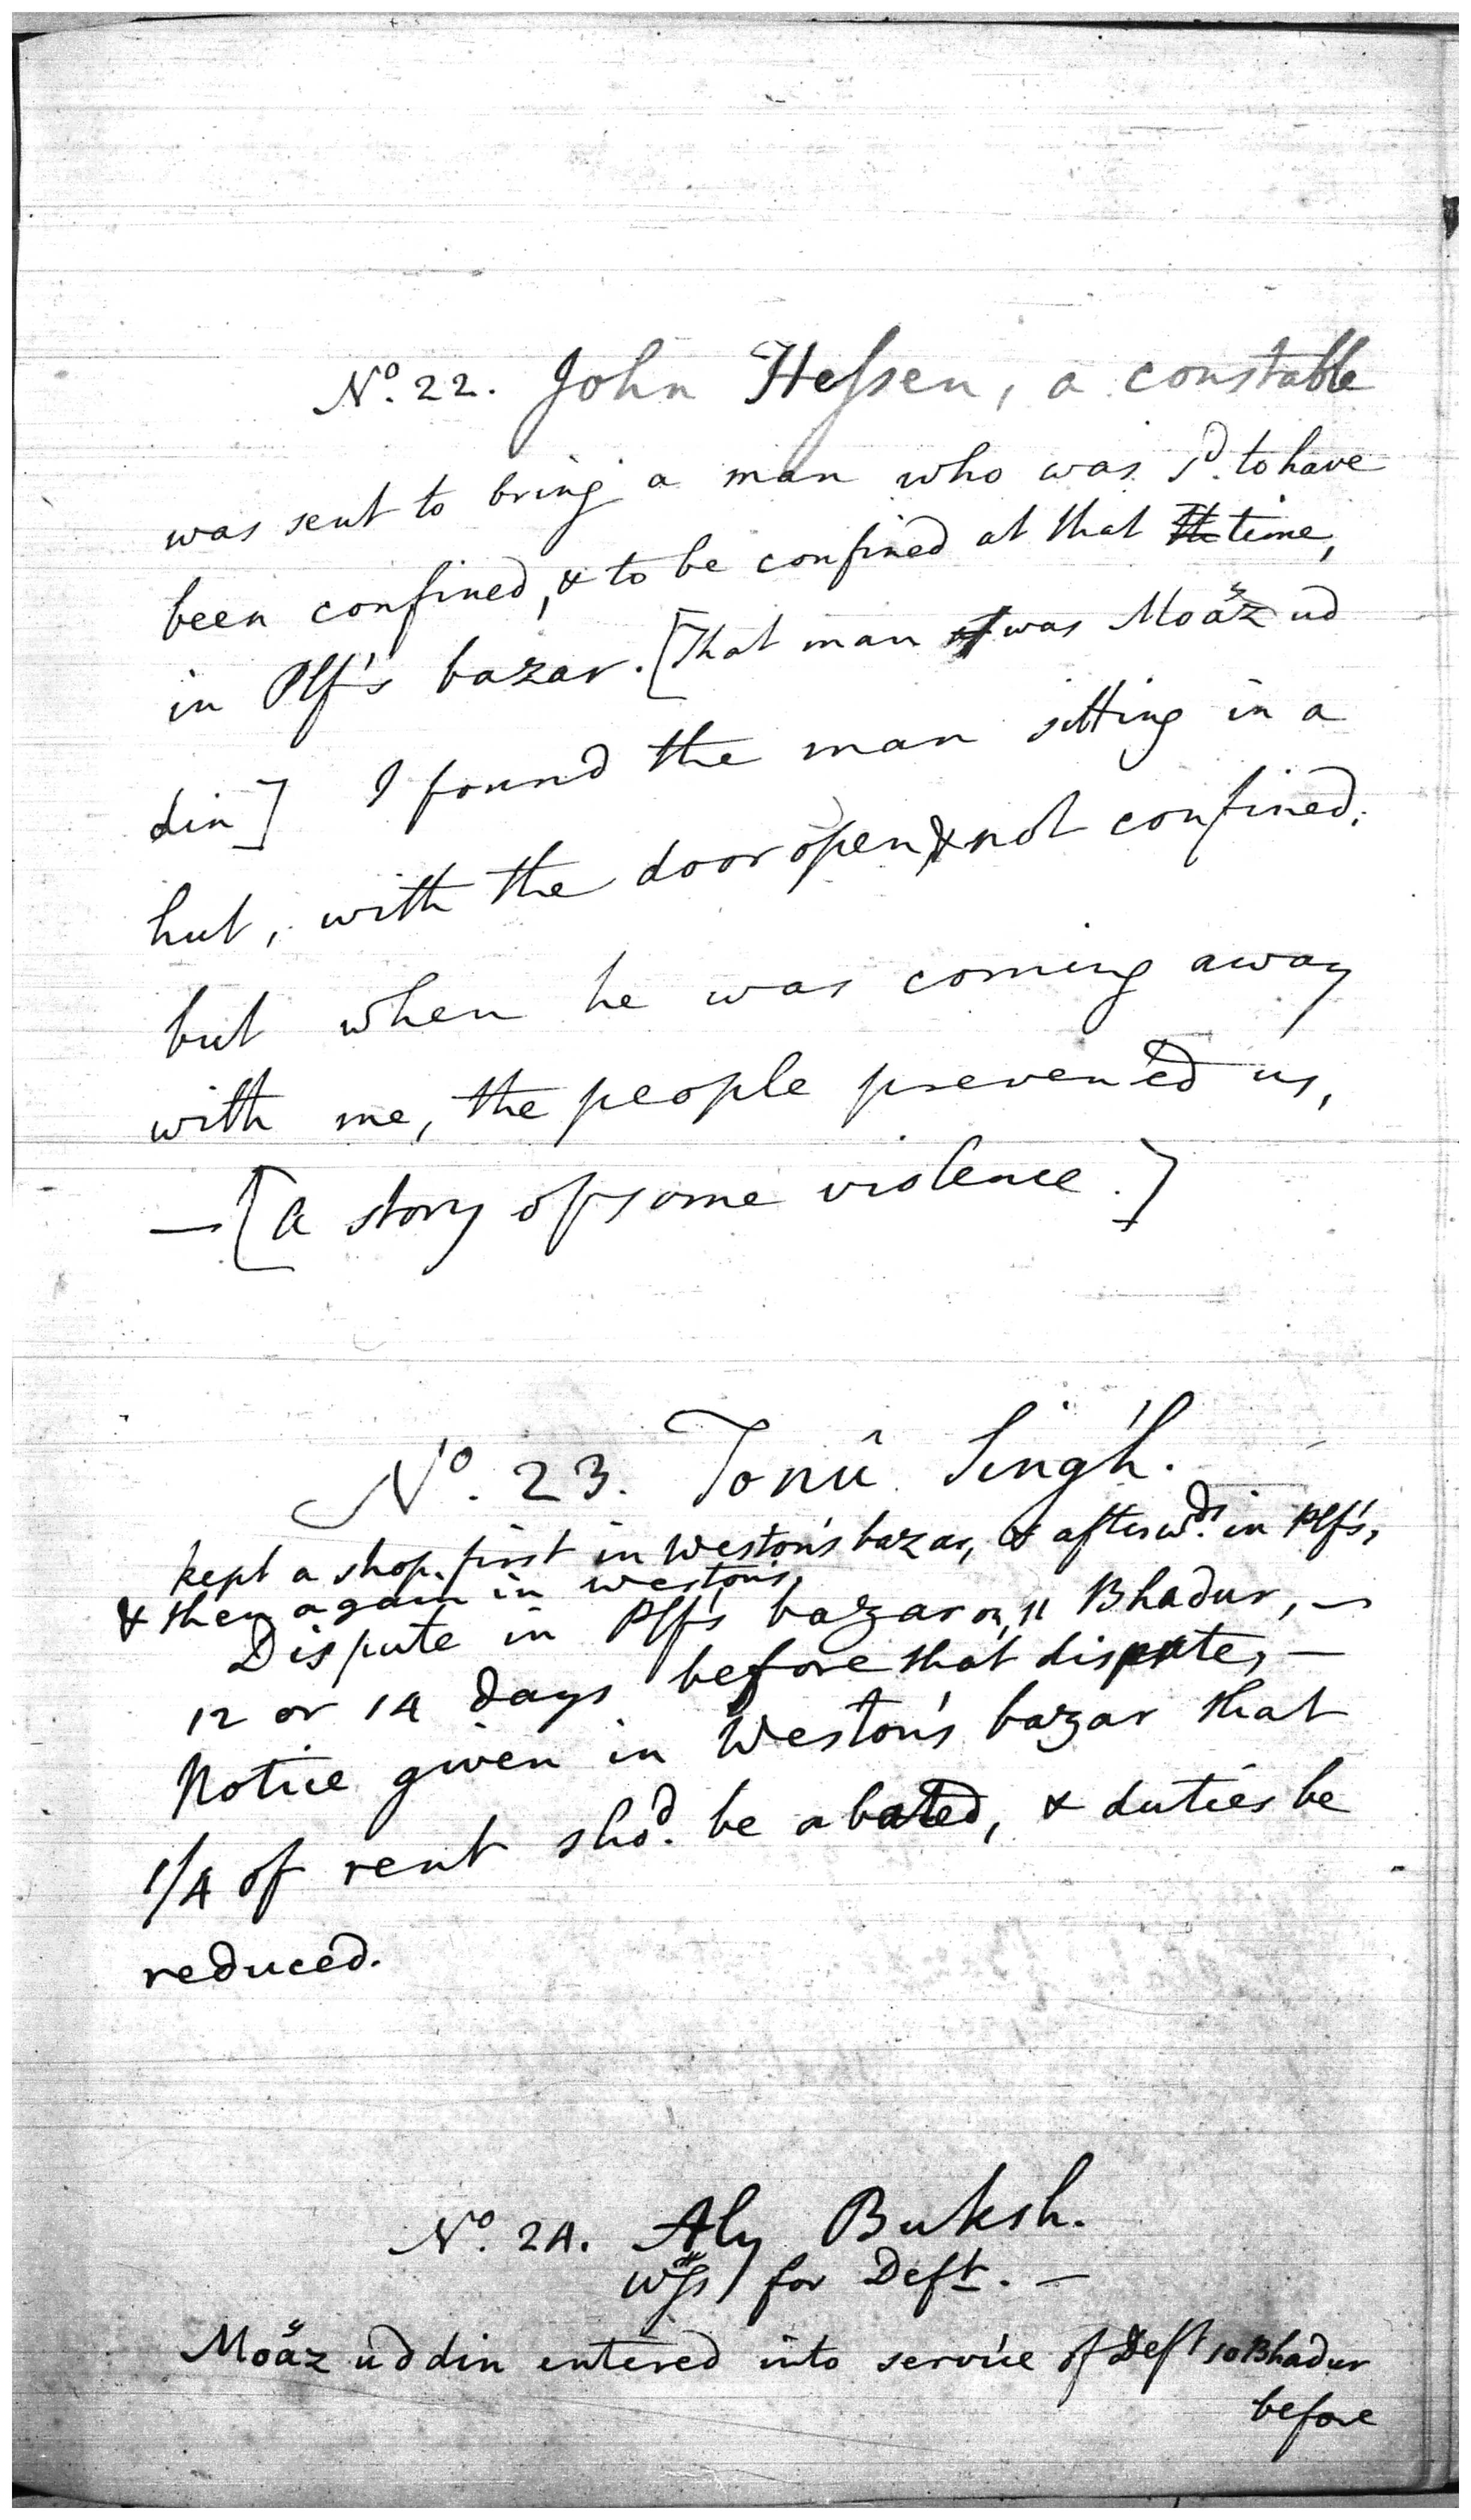 No. 22. John Hessen, a constable
was sent to bring a man who was sd. to have
been confined, & to be confined at that time,
in Plf's bazar. [That man was Moäz ud
din] I found the man sitting in a
hut, with the door open & not confined;
but when he was coming away
with me, the people prevented us,
— [a story of some violence.]
No. 23. Tonû Singh.
kept a shop first in Weston's bazar, & afterwds. in Plf's,
& then again in Weston's,
Dispute in Plf's bazar on 11 Bhadur, —
12 or 14 days before that dispute, —
Notice given in Weston's bazar that
1/4 of rent shod. be abated, & duties be
reduced.
No. 24. Aly Buksh.
for Deft. —
Moäz uddin entered into service of Deft 10 Bhadur
before